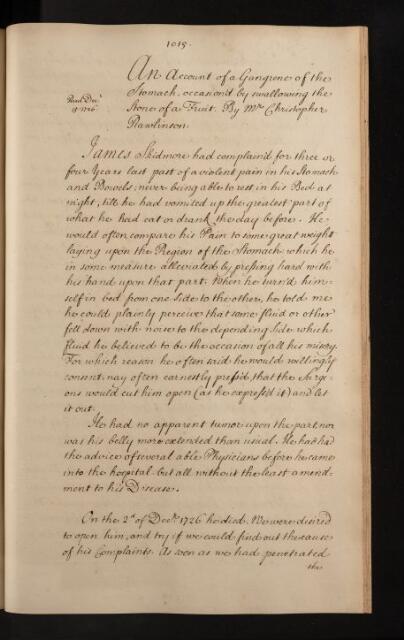 1015.
An Account of a Gangrene of the
Stomach occasion'd by swallowing the
Read Dec.r
Stone of a Fruit. By Mr. Christopher
1726
Rawlinson.
James Skidmore had complain'd for three or
four Years last past of a violent pain in his Stomach
and Bowels; never being able to rest in his Bed at
night, till he had vomited up the greatest part of
what he had eat or drank the day before. He
would often compare his Pain to some great weight
laying upon the Region of the Stomach which he
in some measure alleviated by pressing hard with
his hand upon that part. When he turn'd him-
self in bed from one Side to the other, he told me
he could plainly perceive that some fluid or other
fell down with noise to the depending Side which
fluid he believed to be the occasion of all his misery.
For which reason he often said he would willingly
consent, nay often earnestly press'd, that the Surge-
ons would cut him open (as he express'd it) and let
it out.
He had no apparent tumor upon the part, nor
was his belly more extended than usual. He had had
the advice of several able Physicians before he came
into the hospital but all without the least amend-
ment to his Disease.
On the 2d. of Decr. 1726 he died. We were desired
to open him, and try if we could find out the cause
of his Complaints. As soon as we had penetrated
the